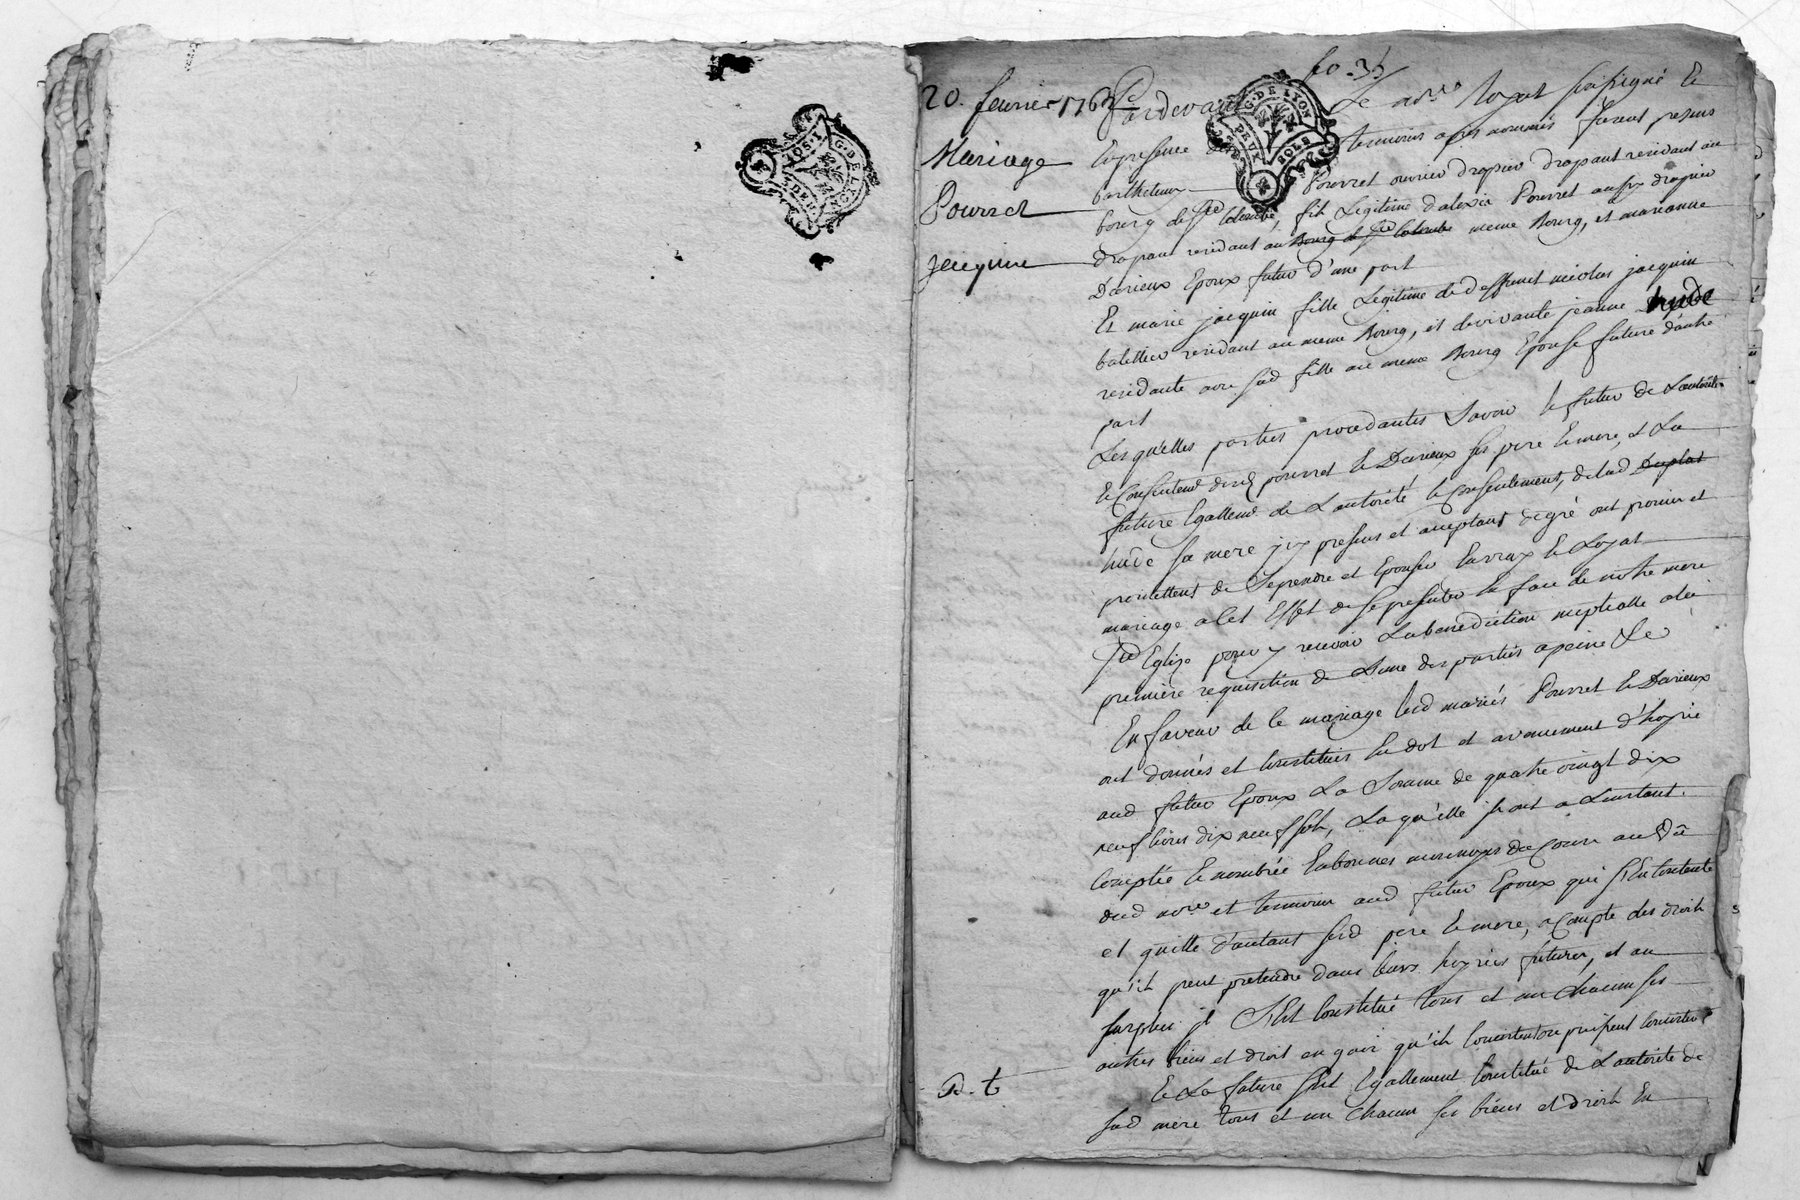 fo. 3
20. fevrier 1763
Mariage
Pourret
jacquin
Pardevant Le nore Royal soussigné Et
En presence des temoins apres nommés furent presens
barthelemy Pourret ouvrier drapier drapant residant au
bourg de Ste Colombe, fils Legitime d'alexis Pourret aussy drapier
drapant residant au Bourg de Ste Colombe meme Bourg, et marianne
Darieux Epoux futur d'une part
Et marie jacquin fille Legitime de deffunct nicolas jacquin
batellier residant au meme Bourg, et de vivante jeanne hude
residante avec sad fille au meme Bourg Epouse future d'autre
part
Lesquelles parties procedantes Savoir le futur de Lautorité
et Consentemt desd pourret et Darieux ses pere et mere, et La
future Egallemt de Lautorité et Consentement, de lad
hude sa mere icy presens et acceptant degré ont promis et
promettent de Se prendre et Epouser En vray et Loyal
mariage a cet Effet de se presenter En face de nôtre mere
Ste Eglise pour y recevoir La benediction nuptialle a la
premiere requisition de L'une des parties a peine &c
En faveur de ce mariage lesd mariés Pourret et Darieux
ont donnés et Constitués En dot et avancement d'hoyrie
aud futur Epoux La Somme de quatre vingt dix
neuf livres dix neuf sols, La qu'elle ils ont a Linstant
Comptée et nombrée En bonnes monnoyes de Cours au vû
dud nore et temoins aud futur Epoux qui s'En Contente
et quitte d'autant sesd pere et mere, a Compte des droits
qu'il peut pretendre dans leurs hoyries futures, et au
surplus il S'est Constitué tous et un chacun ses
autres biens et droits en quoy qu'ils Consistent ou puissent Consister
Et La future s'est Egallement Constitué de Lautorité de
sad mere tous et un chacun ses biens et droits En
G. DE LYON